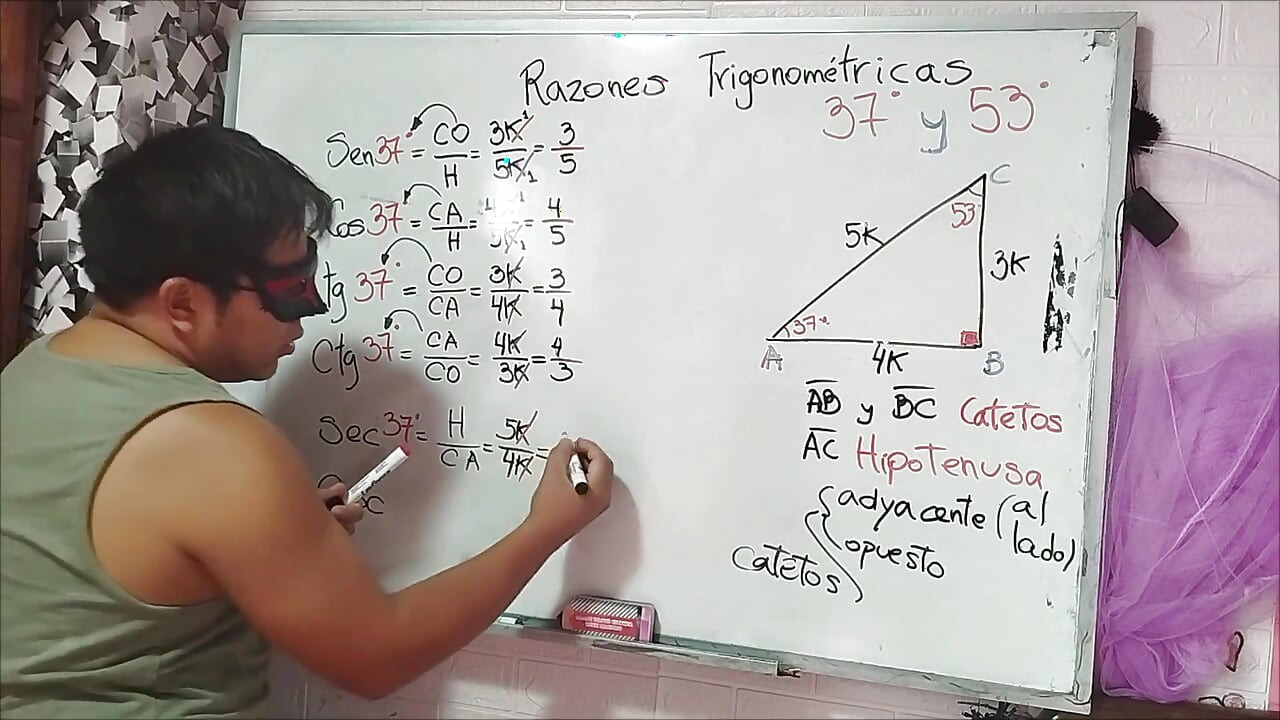 Razones Trigonométricas
37° y 53°
Sen 37° = CO/H = 3K/5K = 3/5
Cos 37° = CA/H = 4K/5K = 4/5
tg 37° = CO/CA = 3K/4K = 3/4
Ctg 37° = CA/CO = 4K/3K = 4/3
Sec 37° = H/CA = 5K/4K =
C
53
5K
3K
37°
A
4K
B
AB y BC Catetos
AC Hipotenusa
Catetos { adyacente (al lado)
opuesto